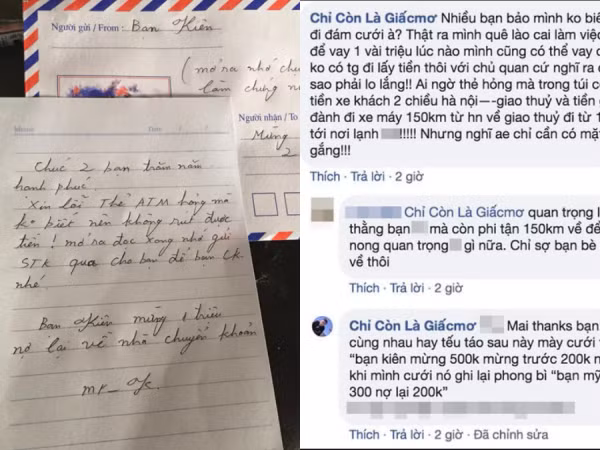 Người gửi / From : Bạn Kiên
( mở ra nhớ
làm chứng
Người nhận / To
Mừng
2
Chúc 2 bạn trăm năm
hạnh phúc.
Xin lỗi Thẻ ATM hỏng mà
ko biết nên không rút được
tiền ! mở ra đọc xong nhớ gửi
STK qua cho bạn để bạn CK
nhé.
Bạn Kiên mừng 1 triệu
nợ lại về nhà chuyển khoản
mr_ K.
Chỉ Còn Là Giấcmơ Nhiều bạn bảo mình ko biế
đi đám cưới à? Thật ra mình quê lào cai làm việc
để vay 1 vài triệu lúc nào mình cũng có thể vay c
ko có tg đi lấy tiền thôi với chủ quan cứ nghĩ ra c
sao phải lo lắng!! Ai ngờ thẻ hỏng mà trong túi c
tiền xe khách 2 chiều hà nội—-giao thuỷ và tiền c
đành đi xe máy 150km từ hn về giao thuỷ đi từ 1
tới nơi lạnh !!!!! Nhưng nghĩ ae chỉ cần có mặ
gắng!!!
Thích · Trả lời · 2 giờ
Chỉ Còn Là Giấcmơ quan trọng l
thằng bạn mà còn phi tận 150km về để
nong quan trọng gì nữa. Chỉ sợ bạn bè
về thôi
Thích · Trả lời · 2 giờ
Chỉ Còn Là Giấcmơ Mai thanks bạn.
cùng nhau hay tếu táo sau này mày cưới t
"bạn kiên mừng 500k mừng trước 200k n
khi mình cưới nó ghi lại phong bì "bạn mỹ
300 nợ lại 200k"
Thích · Trả lời · 2 giờ · Đã chỉnh sửa